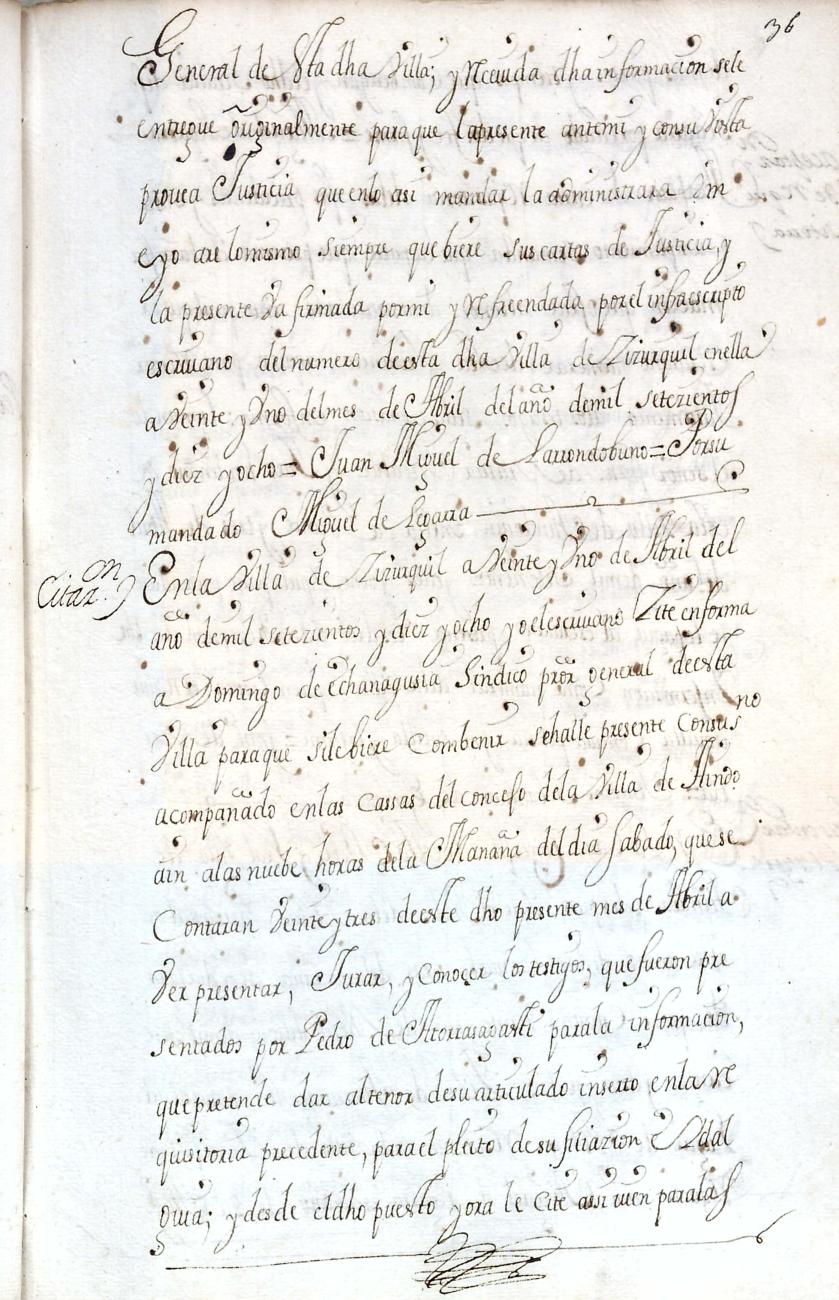 36
General de Vta dha Villa; y Receuida dha informacion sele
entregue originalmente para que lapresente antemi y consu Vista
prouea Justicia que enlo asi mandar la administrara Vm
e yo are lomismo siempre que biere sus cartas de Justicia, y
la presente Va firmada pormi y Refrendada por el infraescripto
escriuano del numero de esta dha Villa de Zizurquil en ella
a Veinte y Vno del mes de Abril del año demil setezientos
y diez y ocho = Juan Miguel de Larrondobuno = Porsu
mandado Miguel de Legarra
Citazon
Enla Villa de Zizurquil a Veinte y Vno de Abril del
año demil setezientos y diez y ocho yo el escriuano Zite enforma
a Domingo de Echanagusia Sindico pror general deesta
Villa para que sile biere Combenir sehalle presente Consus no
acompañado enlas Cassas del concejo dela Villa de Aindo
ain alas nuebe horas dela Mañana del dia Sabado, que se
Contaran Veinte y tres deeste dho presente mes de Abril a
Ver presentar, Jurar, y Conoçer los testigos, que fueron pre
sentados por Pedro de Atorrasagasti parala informaçion,
que pretende dar altenor desu articulado inserto enla Re
quisitoria precedente, para el pleito de su filiazion e Ydal
guia; y desde el dho puesto y ora le Cite assi uien paralas